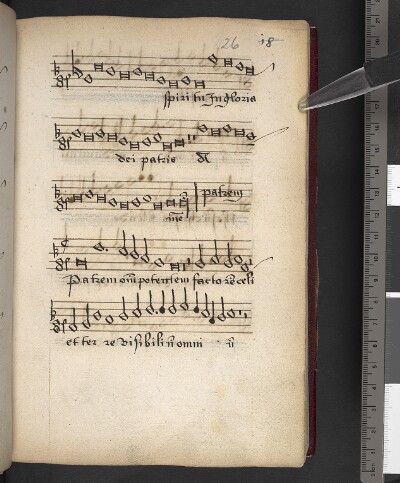 26 18
spiri tu In gloria
dei patris
patrem
me
Patrem om̄ipotentem facto rē celi
et ter re visibiliū omni ū